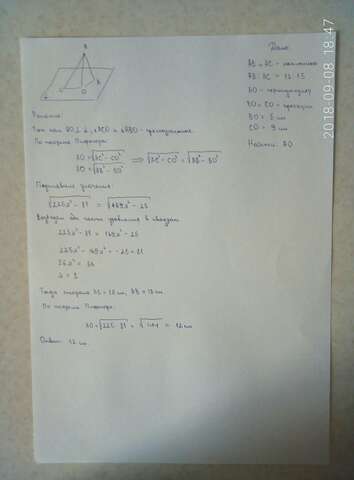 A
α
C
O
B
Дано:
AB и AC - наклонные
AB : AC = 13 : 15
AO - перпендикуляр
BO и CO - проекции
BO = 5 см
CO = 9 см
Найти: AO
Решение:
Так как AO ⊥ α, △ACO и △ABO - прямоугольные.
По теореме Пифагора:
AO = √AC² - CO² ⇒ √AC² - CO² = √AB² - BO²
AO = √AB² - BO²
Подставляем значения:
√225x² - 81 = √169x² - 25
Возведем обе части уравнения в квадрат
225x² - 81 = 169x² - 25
225x² - 169x² = - 25 + 81
56x² = 56
x = 1
Тогда AC = 15 см, AB = 13 см.
По теореме Пифагора:
AO = √225 - 81 = √144 = 12 см
Ответ: 12 см.
2018-09-08 18:47